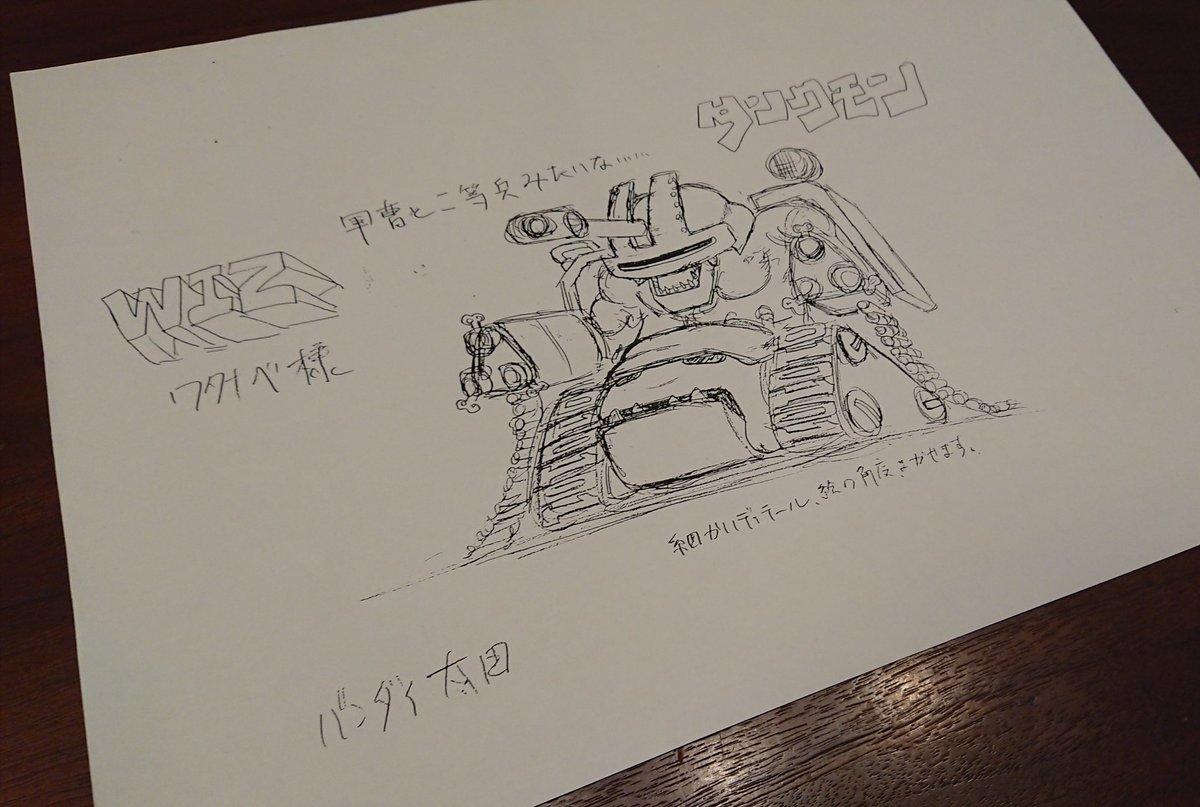 タンクモン
甲曹と二等兵みたいな……
WIZ
ワタナベ様
細かいディテール、絵の角度まかせます。
バンダイ 太田